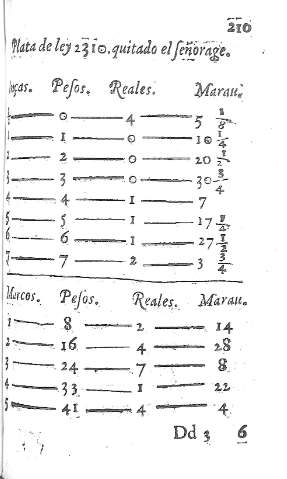 210
Plata de ley 2310. quitado el señorage.
Pesos. Reales. Marau.
0 4 5 1/8
1 1 0 10 1/4
2 2 0 20 1/2
3 3 0 30 3/4
4 4 1 7
5 5 1 17 1/4
6 6 1 27 1/2
7 7 2 3 3/4
Marcos. Pesos. Reales. Marau.
1 8 2 14
2 16 4 28
3 24 7 8
4 33 1 22
5 41 4 4
Dd 3 6